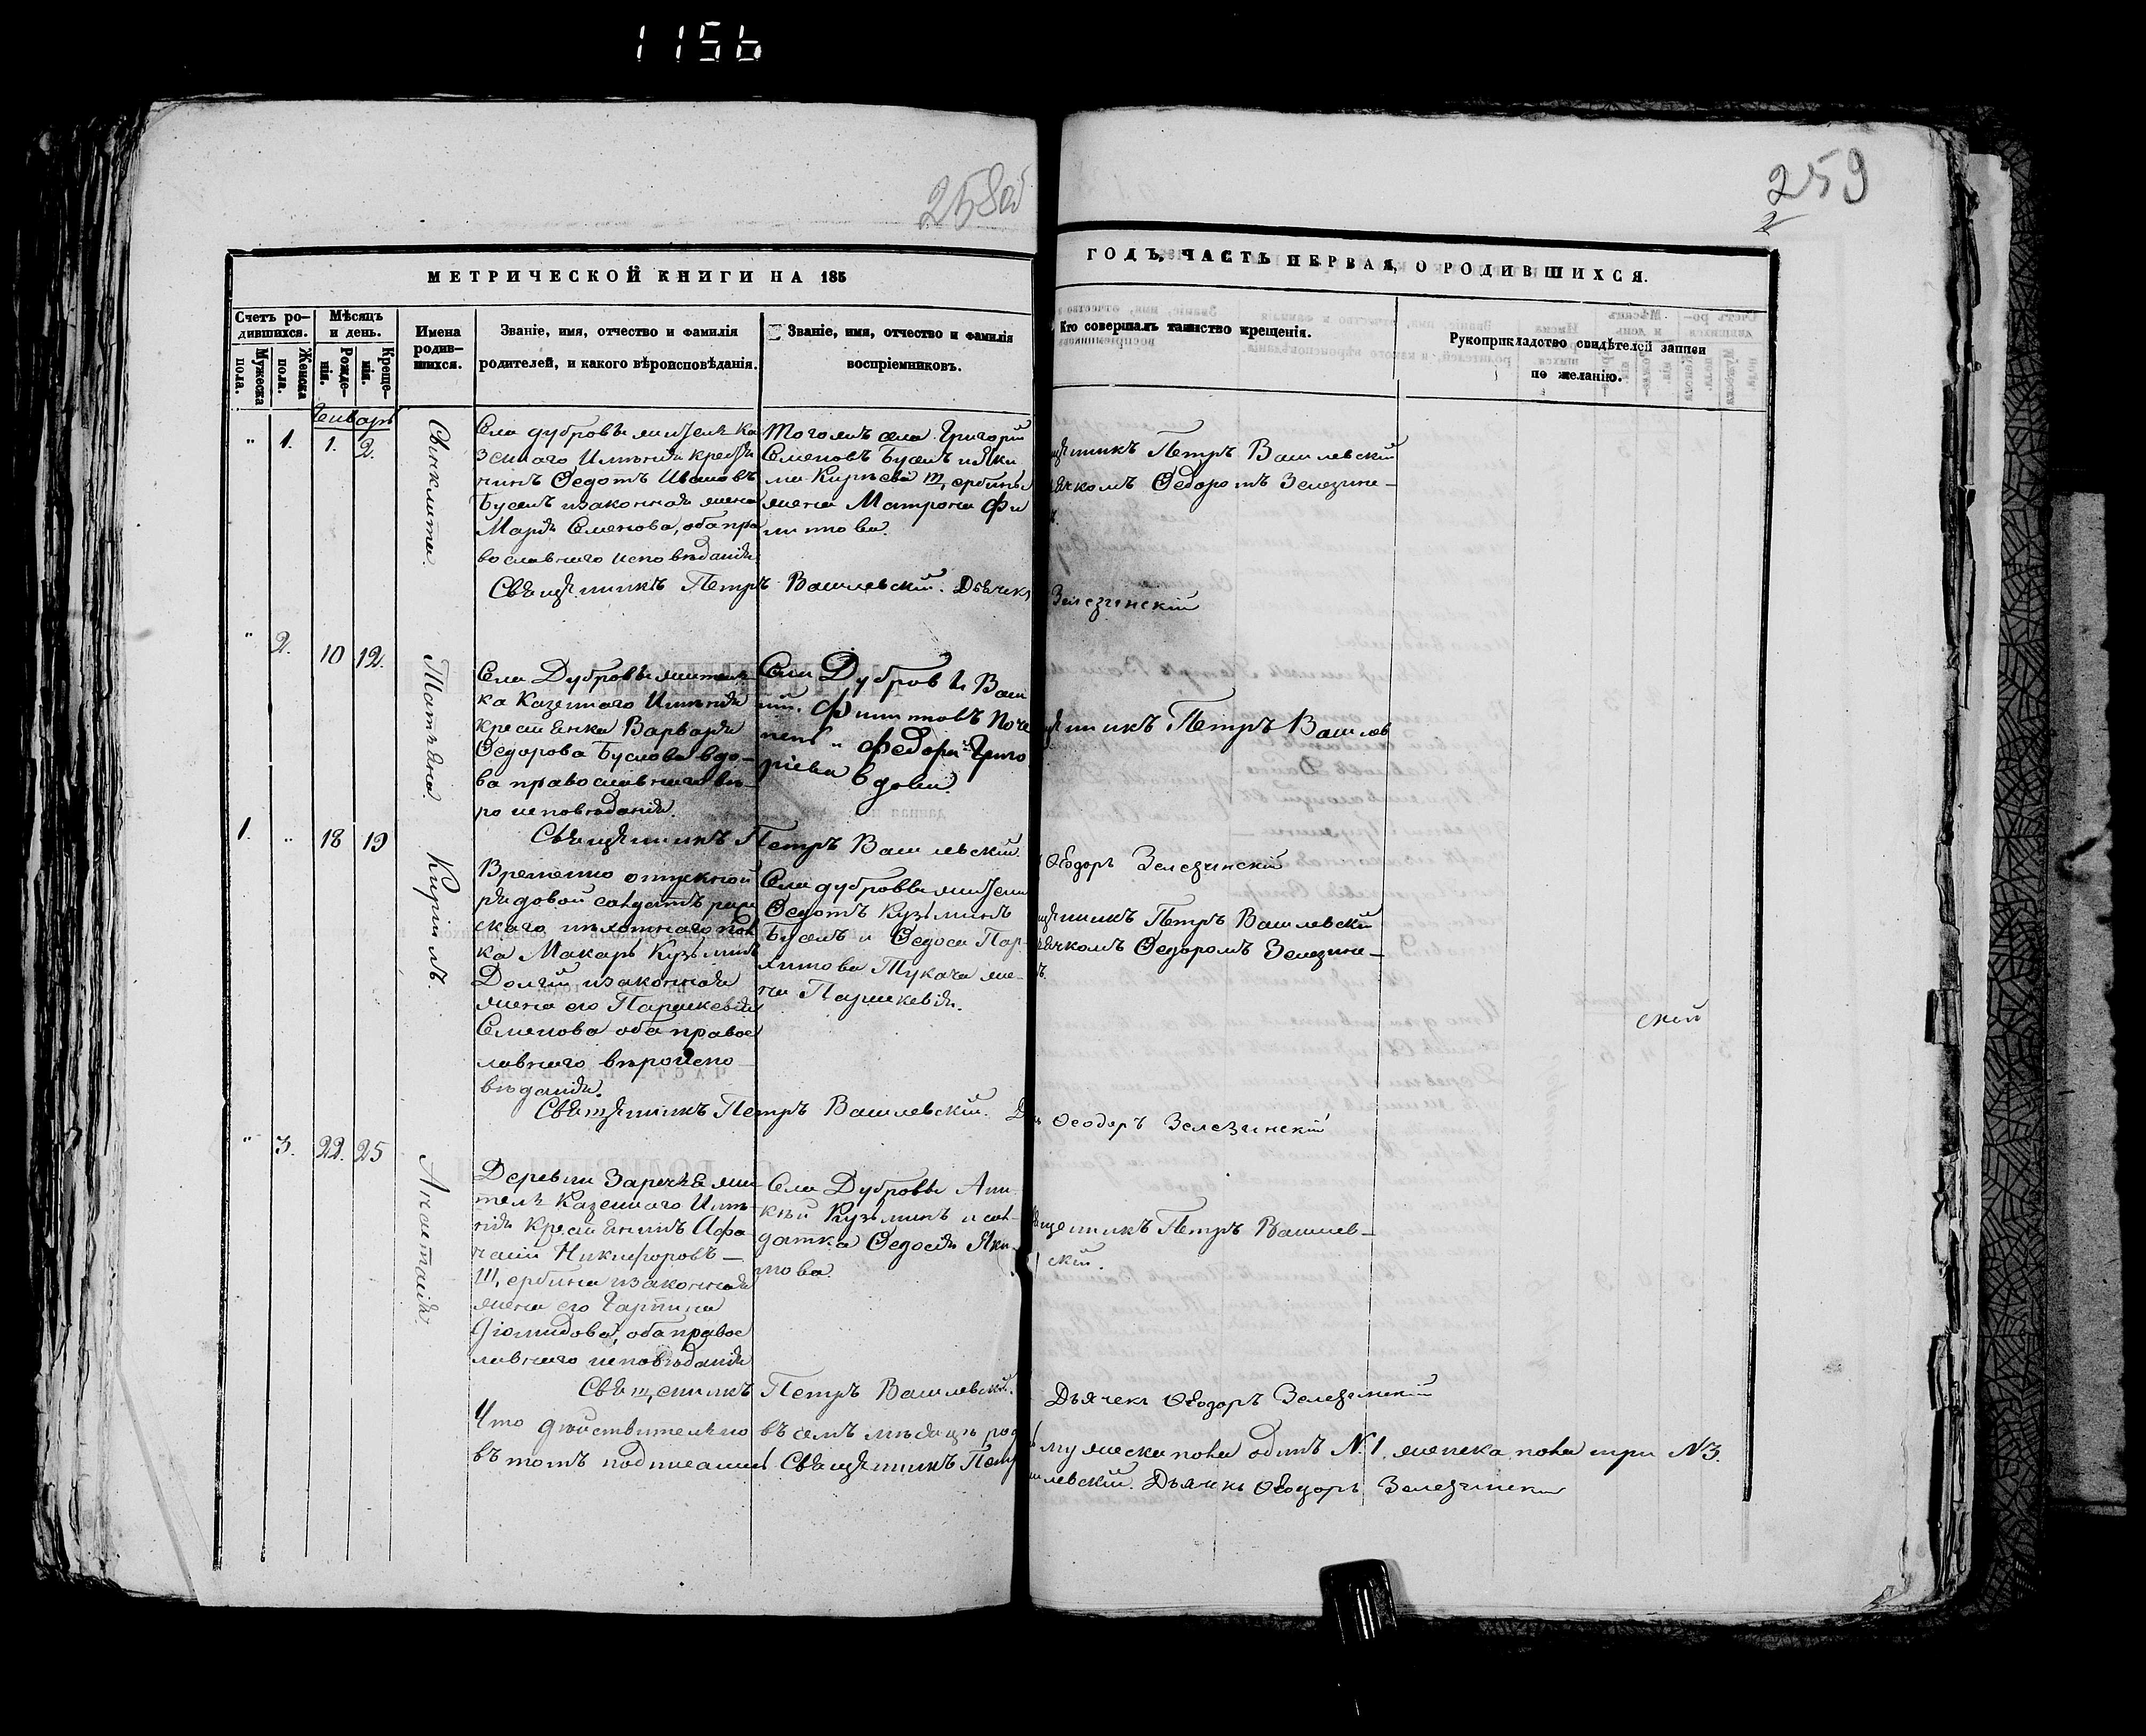 1156
258об
259
МЕТРИЧЕСКОЙ КНИГИ НА 185
ГОДЪ, ЧАСТЬ ПЕРВАЯ, О РОДИВШИХСЯ.
Счетъ ро-
дившихся.
Мужеска
пола.
Женска
пола.
Мѣсяцъ
и день.
Рожде-
нія.
Креще-
нія.
Имена
родив-
шихся.
Званіе, имя, отчество и фамилія
родителей, и какого вѣроисповѣданія.
Званіе, имя, отчество и фамилія
воспріемниковъ.
Кто совершалъ таинство крещенія.
Рукоприкладство свидѣтелей записи
по желанію.
Генварь
" 1. 1. 2.
Сѵнклитикія
Села Дубровы житель Ка
зеннаго Имѣнія крестья
нинъ Ѳедотъ Ивановъ
Бусель и законная жена
Марія Семенова, оба пра
вославнаго исповѣданія
Тогожъ села Григорій
Семеновъ Бусель и Яки
ма Кирѣева Щербины
жена Матрона Фи
липова.
щенникъ Петръ Василевскій
ячкомъ Ѳедоромъ Зелезин-
Священникъ Петръ Василевскій. Дьячекъ
Зелезинскій
" 2. 10 12.
Татьяна
Села Дубровы житель
ка Казеннаго Имѣнія
крестьянка Варвара
Ѳедорова Буслова вдо-
ва православнаго вѣ-
роисповѣданія.
Села Дубровы Васи
лій Филиповъ
и Федора Григо
ріева вдова.
щенникъ Петръ Васи лев
скій
Священникъ Петръ Василевскій.
Ѳеодоръ Зелезинскій
1. " 18 19
Кирилъ.
Временно отпускной
рядовой солдатъ
скаго пѣхотнаго пол
ка Макаръ Кузьминъ
Долгій и законная
жена его Параскевія
Семенова оба правос
лавнаго вѣроиспо-
вѣданія.
Села Дубровы житель
Ѳедотъ Кузьминъ
Бусель и Ѳедоса Пар-
химова Тукача же-
на Параскевія.
щенникъ Петръ Василевскій
ячкомъ Ѳедоромъ Зелезин-
Священникъ Петръ Василевскій. Д
Ѳеодоръ Зелезинскій
" 3. 22. 25
Анастасія.
Деревни Заречья жи
тель Казеннаго Имѣ-
нія крестьянинъ Афа
насій Никифоровъ-
Щербина и законная
жена его Гарпина
Діомидова, оба правос
лавнаго исповѣданія
Села Дубровы Али
Кузьминъ и сол-
датка Ѳедосія Яки-
мова.
щенникъ Петръ Василев-
скій.
Священникъ Петръ Василевскій.
Дьячекъ Ѳеодоръ Зелезинскій
Что дѣйствительно въ семъ мѣсяцѣ род
мужеска пола одинъ N.1. женска пола три N3.
въ томъ подписались Священникъ Петръ
илевскій. Дьячекъ Ѳеодоръ Зелезинскій